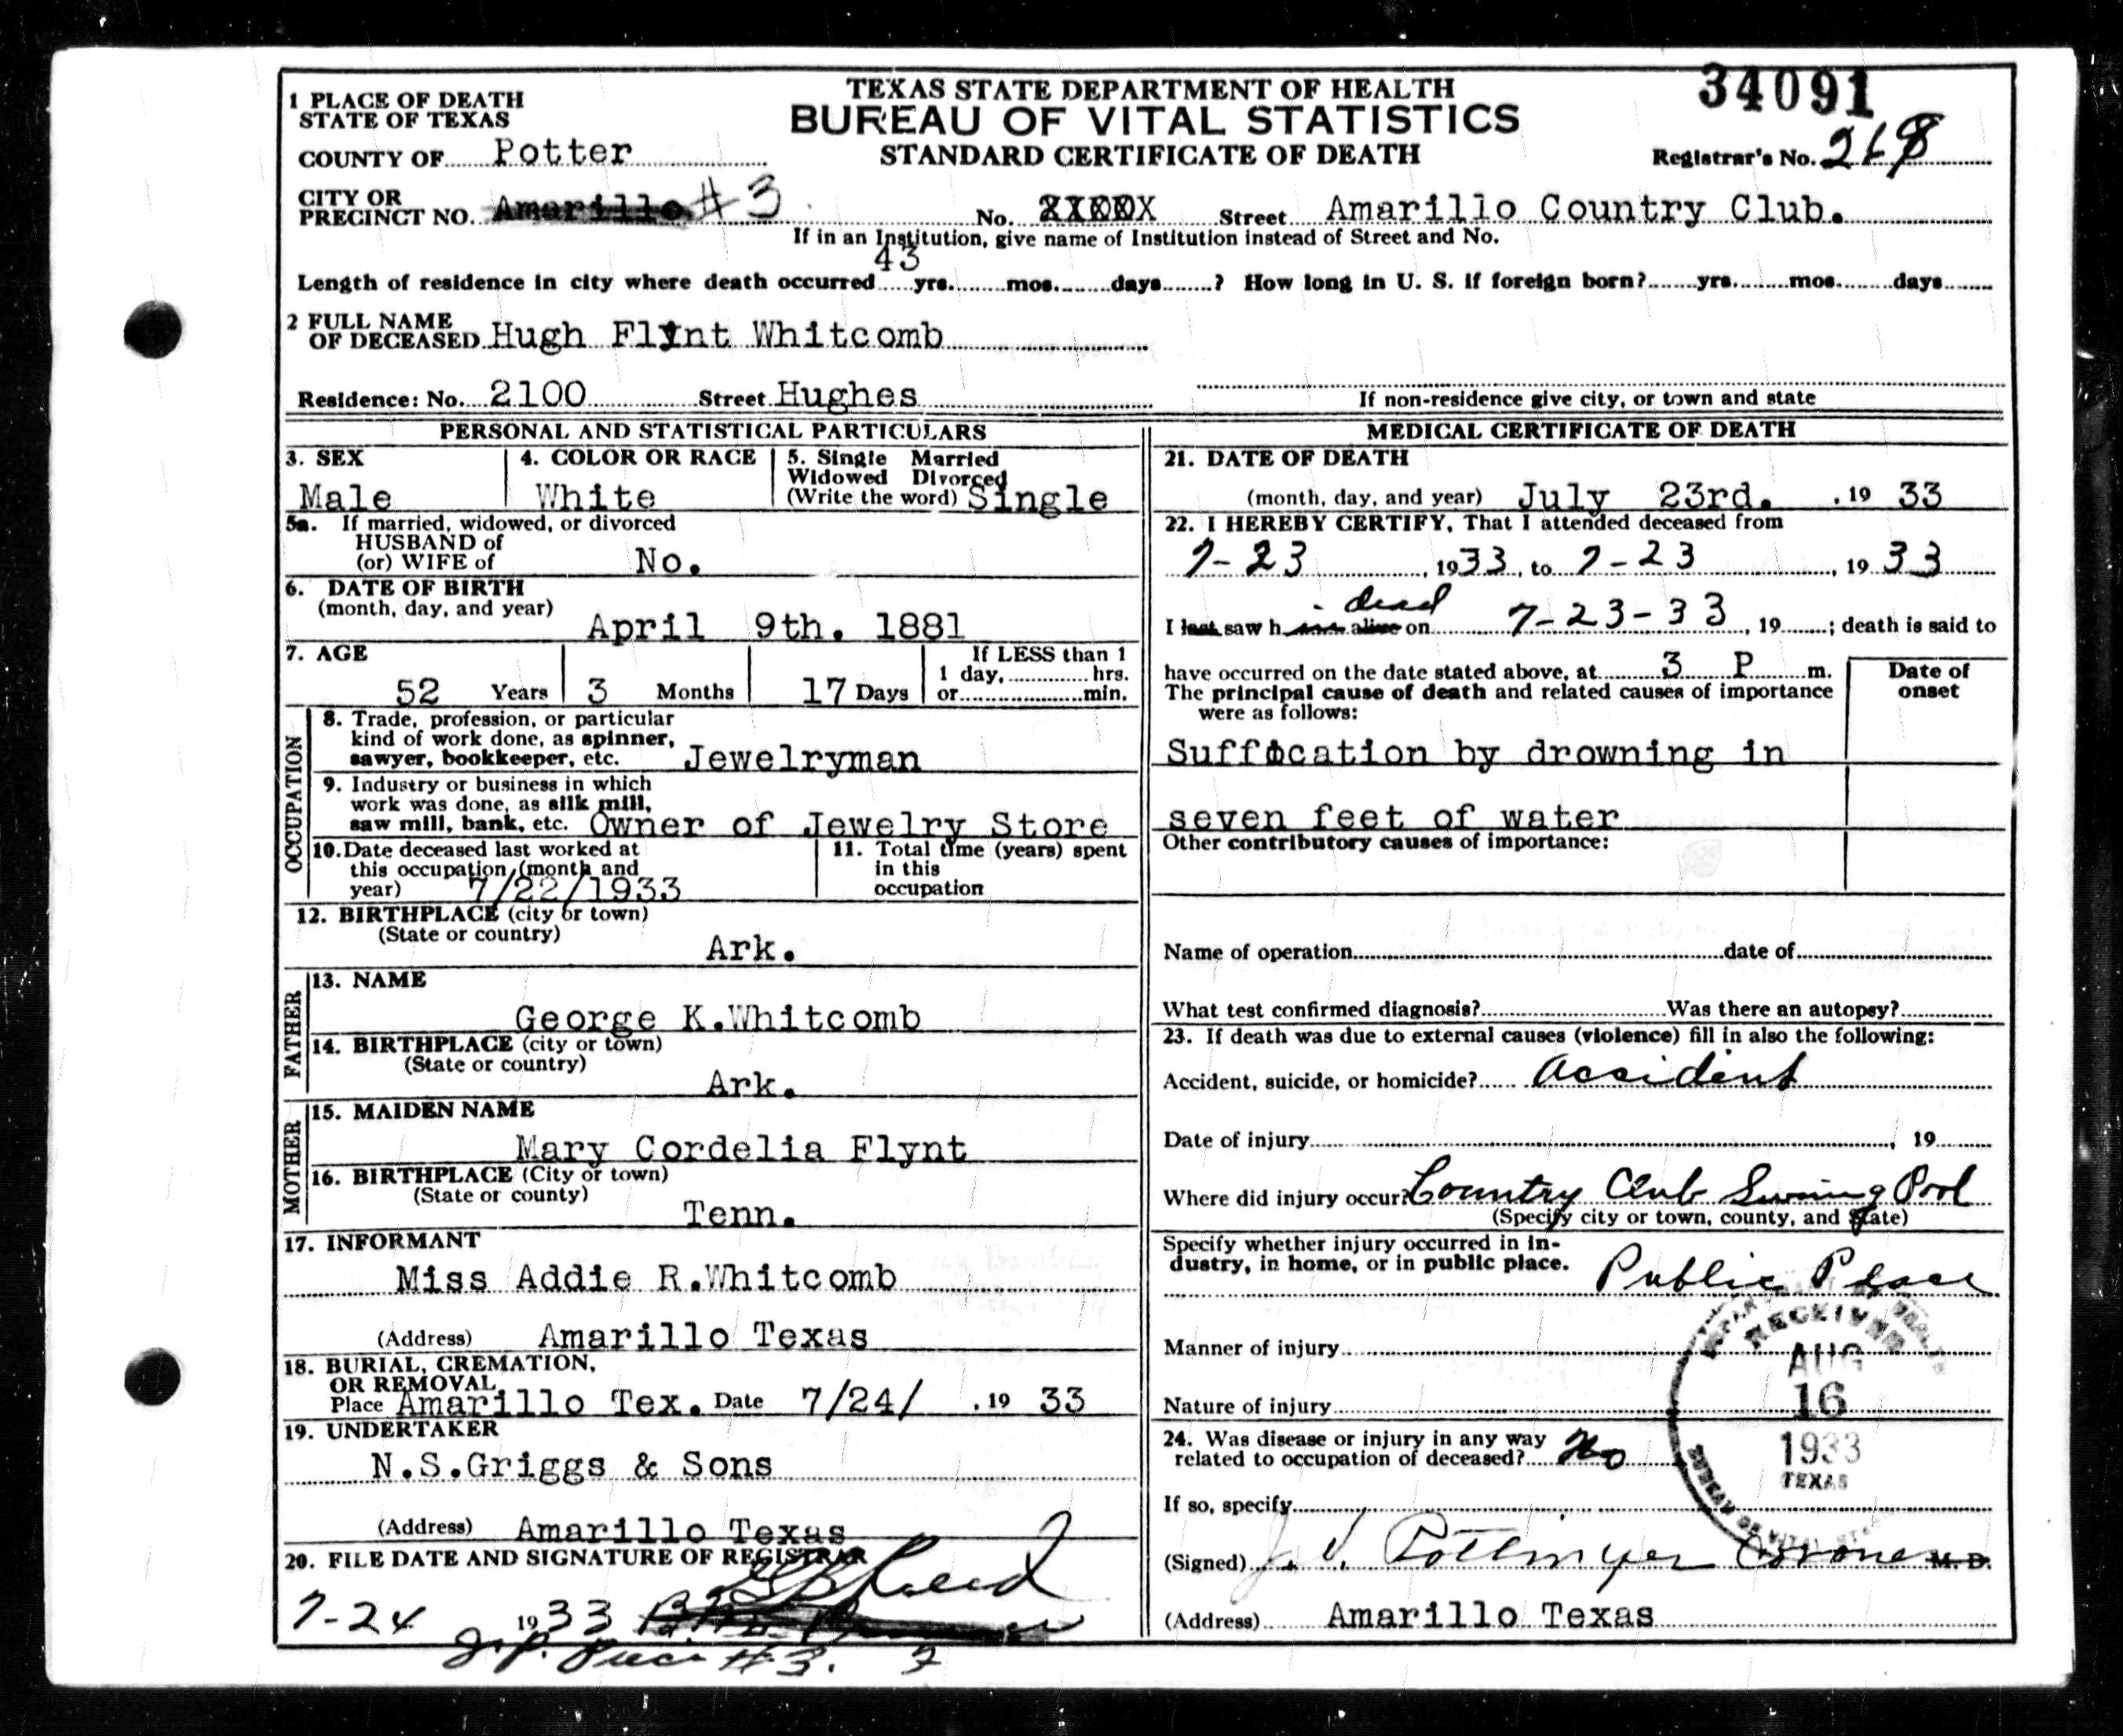 TEXAS STATE DEPARTMENT OF HEALTH
BUREAU OF VITAL STATISTICS
STANDARD CERTIFICATE OF DEATH
34091
Registrar's No. 218
1 PLACE OF DEATH
STATE OF TEXAS
COUNTY OF Potter
CITY OR
PRECINCT NO. Amarillo #3 No. XXXXX Street Amarillo Country Club.
If in an Institution, give name of Institution instead of Street and No.
Length of residence in city where death occurred 43 yrs. mos. days ? How long in U. S. if foreign born? yrs. mos. days
2 FULL NAME
OF DECEASED Hugh Flynt Whitcomb
Residence: No. 2100 Street Hughes
If non-residence give city, or town and state
PERSONAL AND STATISTICAL PARTICULARS
3. SEX
Male
4. COLOR OR RACE
White
5. Single Married
Widowed Divorced
(Write the word) Single
5a. If married, widowed, or divorced
HUSBAND of
(or) WIFE of No.
6. DATE OF BIRTH
(month, day, and year)
April 9th. 1881
7. AGE
52 Years 3 Months 17 Days
If LESS than 1
1 day, hrs.
or min.
OCCUPATION
8. Trade, profession, or particular
kind of work done, as spinner,
sawyer, bookkeeper, etc. Jewelryman
9. Industry or business in which
work was done, as silk mill,
saw mill, bank, etc. Owner of Jewelry Store
10. Date deceased last worked at
this occupation (month and
year) 7/22/1933
11. Total time (years) spent
in this
occupation
12. BIRTHPLACE (city or town)
(State or country)
Ark.
FATHER
13. NAME
George K.Whitcomb
14. BIRTHPLACE (city or town)
(State or country)
Ark.
MOTHER
15. MAIDEN NAME
Mary Cordelia Flynt
16. BIRTHPLACE (City or town)
(State or county)
Tenn.
17. INFORMANT
Miss Addie R.Whitcomb
(Address) Amarillo Texas
18. BURIAL, CREMATION,
OR REMOVAL
Place Amarillo Tex. Date 7/24/ , 19 33
19. UNDERTAKER
N.S.Griggs & Sons
(Address) Amarillo Texas
20. FILE DATE AND SIGNATURE OF REGISTRAR
7-24 1933
J.P. Prec #3.
MEDICAL CERTIFICATE OF DEATH
21. DATE OF DEATH
(month, day, and year) July 23rd. , 19 33
22. I HEREBY CERTIFY, That I attended deceased from
7-23 , 1933, to 7-23 , 19 33
dead
I last saw h alive on 7-23-33 , 19 ; death is said to
have occurred on the date stated above, at 3 P m.
The principal cause of death and related causes of importance
were as follows:
Date of
onset
Suffocation by drowning in
seven feet of water
Other contributory causes of importance:
Name of operation date of
What test confirmed diagnosis? Was there an autopsy?
23. If death was due to external causes (violence) fill in also the following:
Accident, suicide, or homicide? Accident
Date of injury , 19
Where did injury occur? Country Club Swiming Pool
(Specify city or town, county, and State)
Specify whether injury occurred in in-
dustry, in home, or in public place. Public Place
Manner of injury
Nature of injury
24. Was disease or injury in any way
related to occupation of deceased? No
If so, specify
(Signed) J. V. Pottmyer Coroner M. D.
(Address) Amarillo Texas
RECEIVED
AUG
16
1933
TEXAS